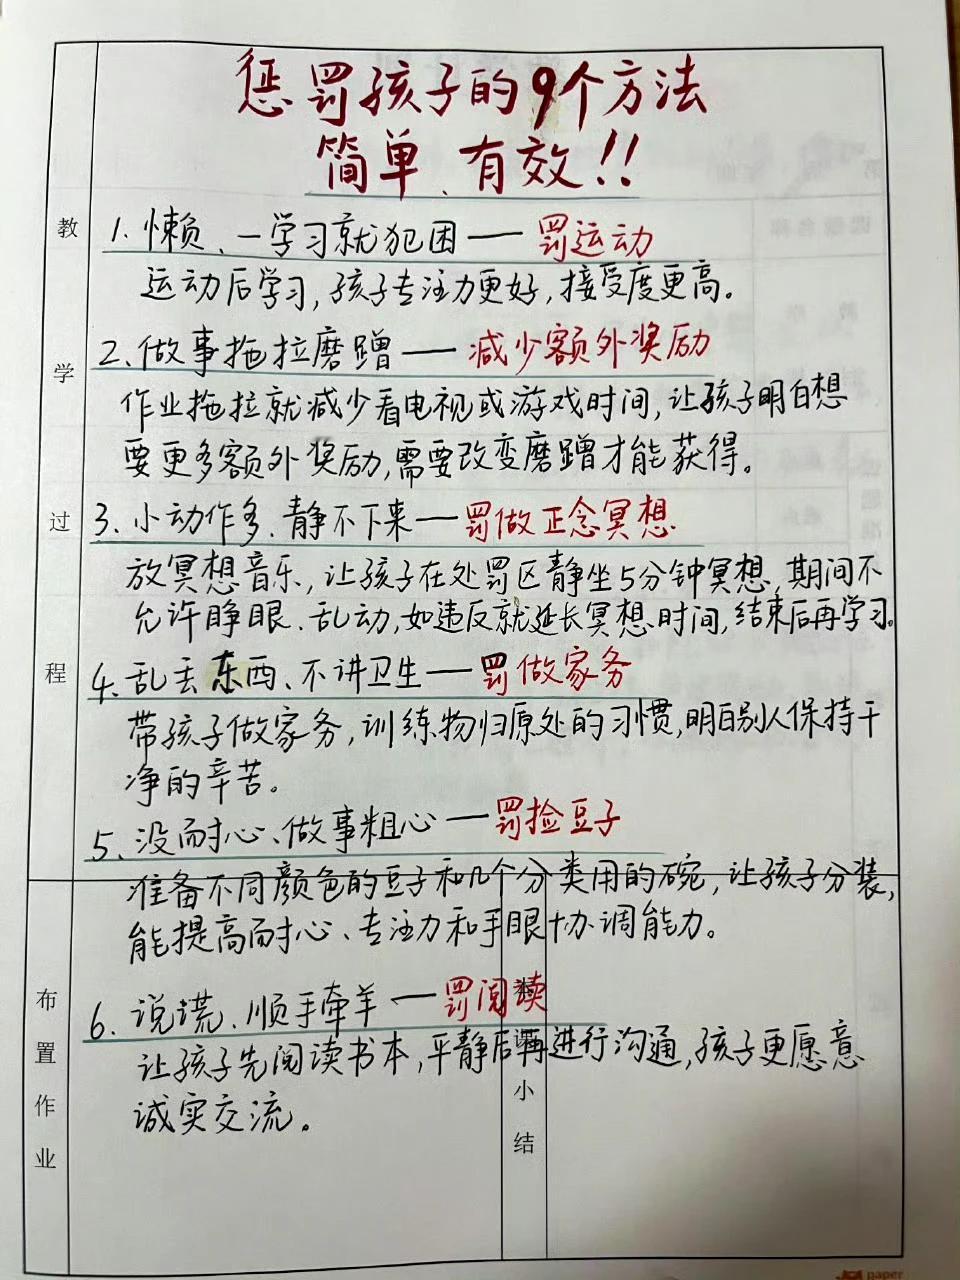 惩罚孩子的9个方法
简单、有效!!
1、懒、一学习就犯困——罚运动
运动后学习,孩子专注力更好,接受度更高。
2、做事拖拉磨蹭——减少额外奖励
作业拖拉就减少看电视或游戏时间,让孩子明白想
要更多额外奖励,需要改变磨蹭才能获得。
3、小动作多、静不下来——罚做正念冥想
放冥想音乐,让孩子在处罚区静坐5分钟冥想,期间不
允许睁眼、乱动,如违反就延长冥想时间,结束后再学习。
4、乱丢东西、不讲卫生——罚做家务
带孩子做家务,训练物归原处的习惯,明白别人保持干
净的辛苦。
5、没耐心、做事粗心——罚捡豆子
准备不同颜色的豆子和几个分类用的碗,让孩子分装,
能提高耐心、专注力和手眼协调能力。
6、说谎、顺手牵羊——罚阅读
让孩子先阅读书本,平静后再进行沟通,孩子更愿意
诚实交流。
教
学
过
程
布
置
作
业
课
小
结
paper